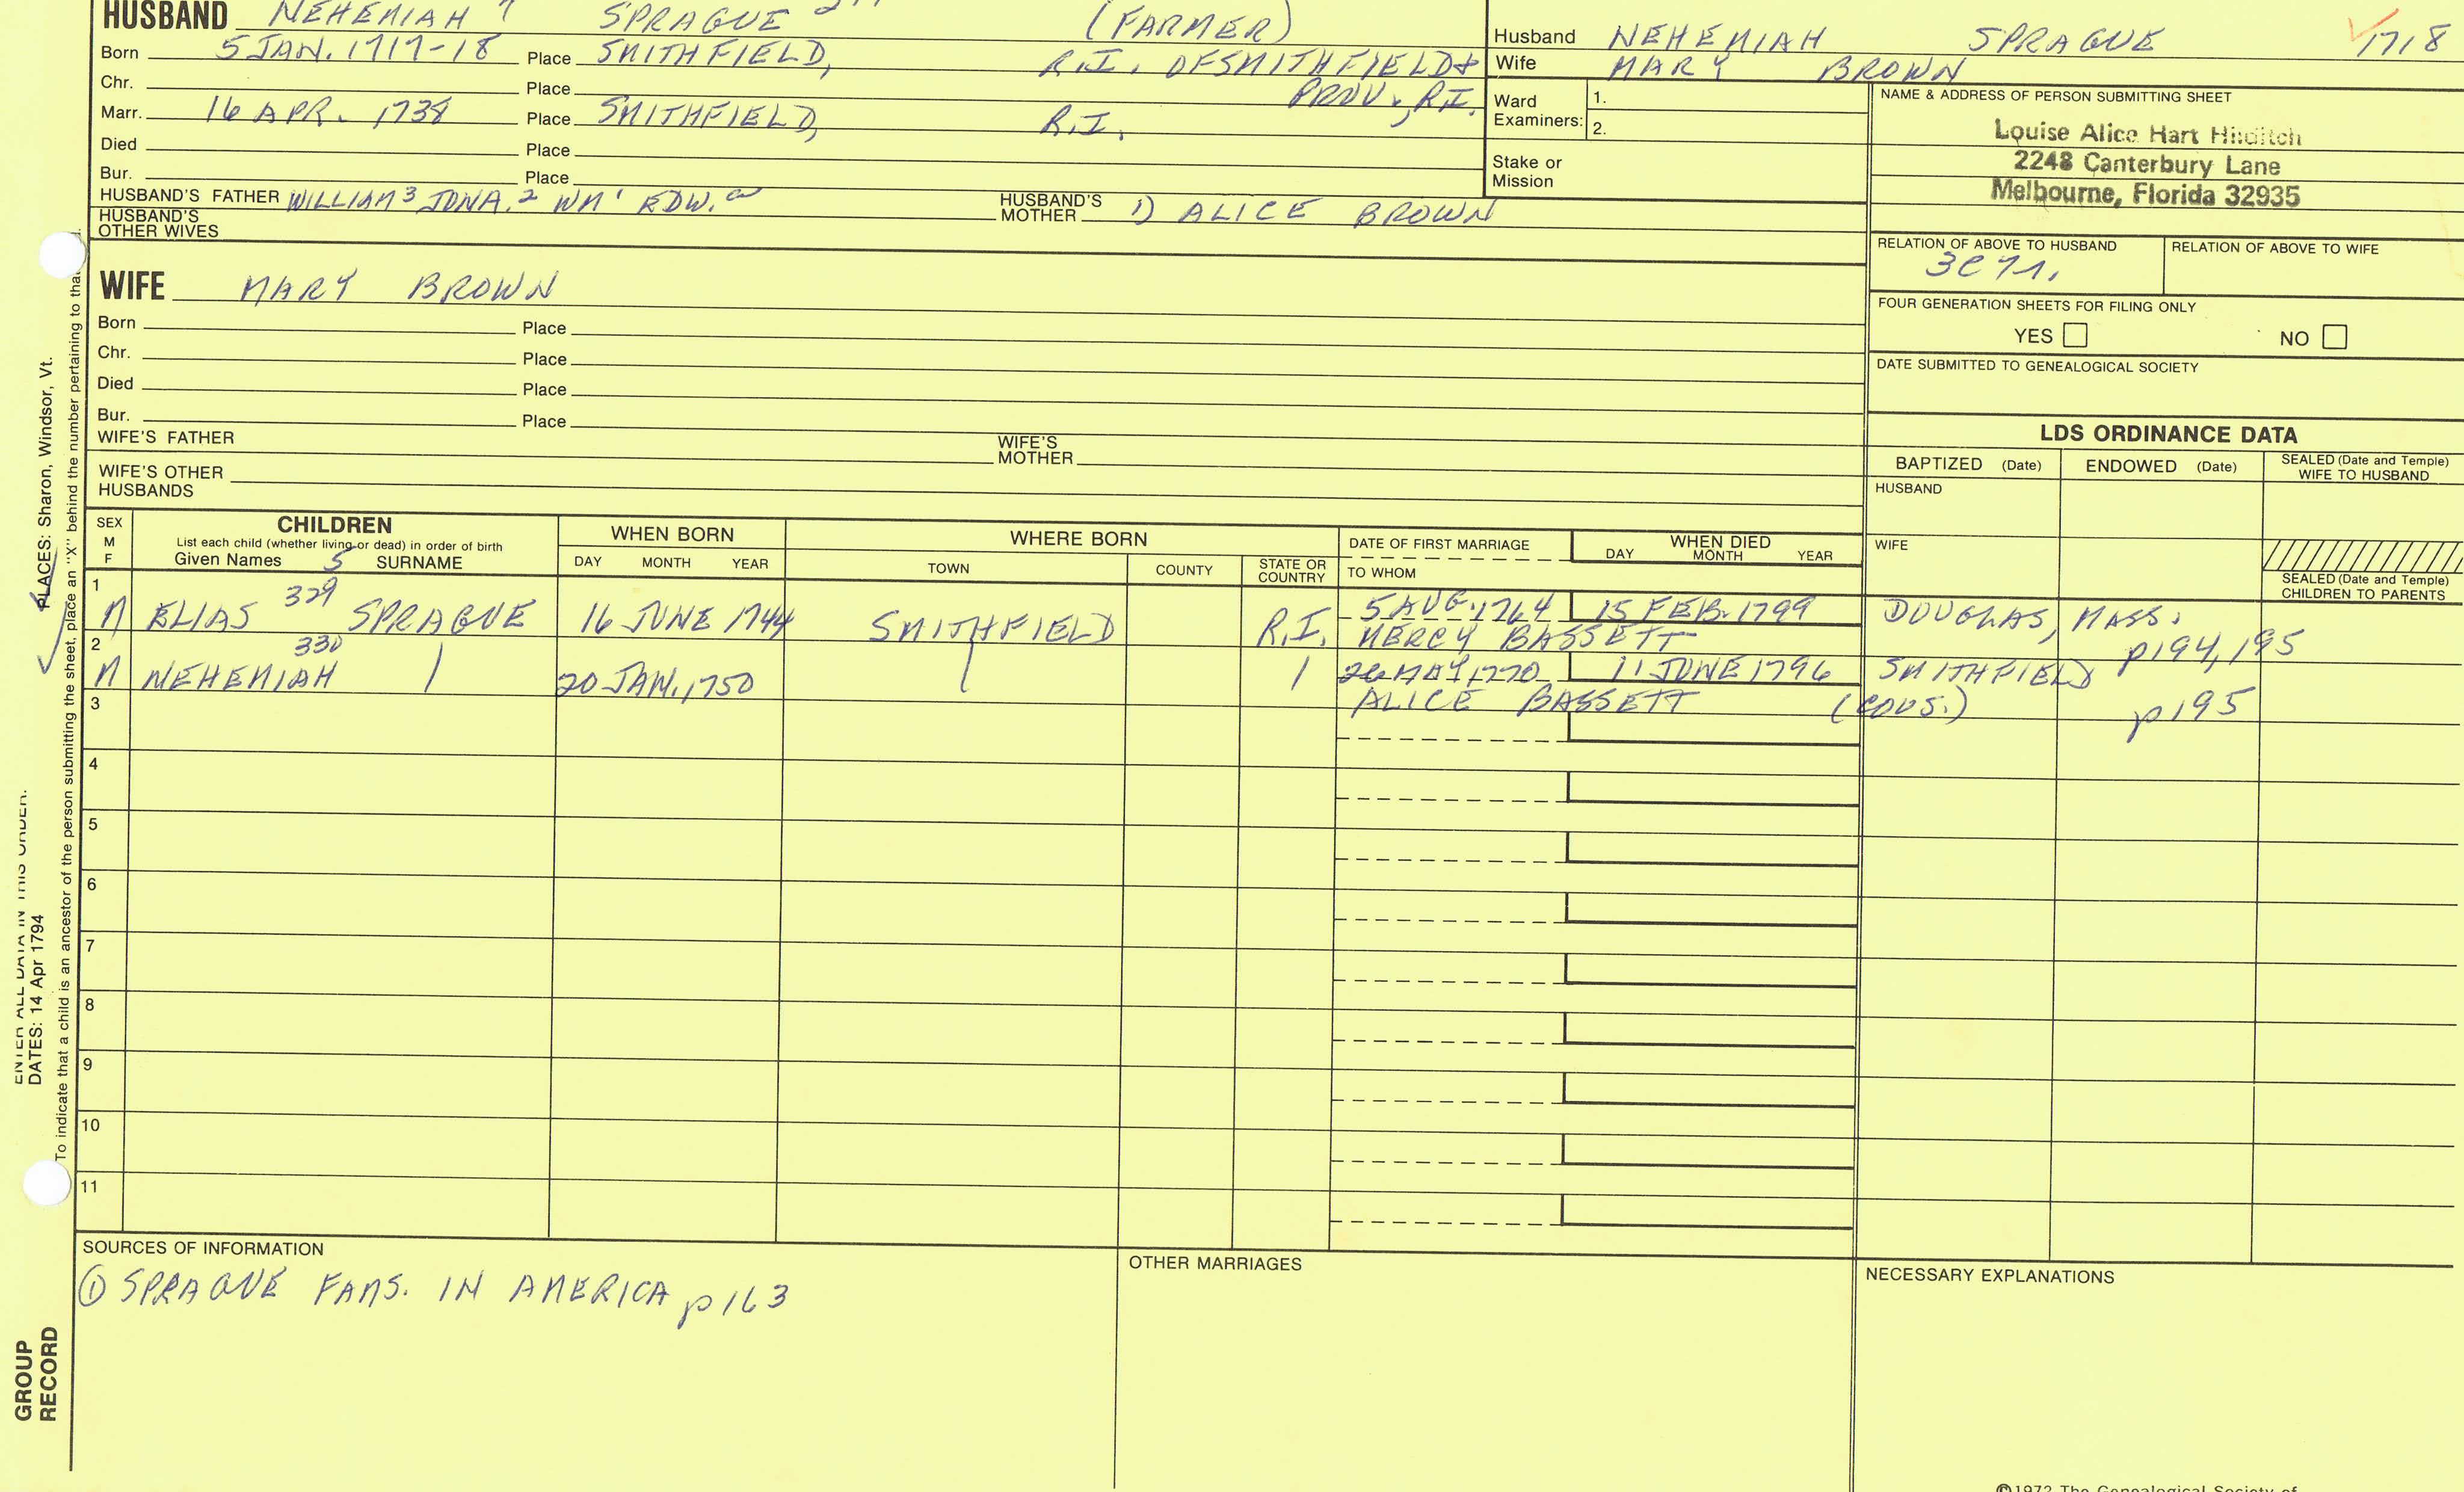 HUSBAND NEHEMIAH SPRAGUE (FARMER)
Born 5 JAN. 1717-18 Place SMITHFIELD, R.I. OF SMITHFIELD &
Chr. Place PROV., R.I.
Marr. 16 APR. 1738 Place SMITHFIELD, R.I.
Died Place
Bur. Place
HUSBAND'S FATHER WILLIAM 3 JONA. 2 WM 1 EDW. a HUSBAND'S MOTHER 1) ALICE BROWN
HUSBAND'S OTHER WIVES
Husband NEHEMIAH SPRAGUE 1718
Wife MARY BROWN
Ward Examiners: 1.
2.
Stake or Mission
NAME & ADDRESS OF PERSON SUBMITTING SHEET
Louise Alice Hart
2248 Canterbury Lane
Melbourne, Florida 32935
RELATION OF ABOVE TO HUSBAND RELATION OF ABOVE TO WIFE
FOUR GENERATION SHEETS FOR FILING ONLY
YES NO
DATE SUBMITTED TO GENEALOGICAL SOCIETY
WIFE MARY BROWN
Born Place
Chr. Place
Died Place
Bur. Place
WIFE'S FATHER WIFE'S MOTHER
WIFE'S OTHER HUSBANDS
LDS ORDINANCE DATA
BAPTIZED (Date) ENDOWED (Date) SEALED (Date and Temple) WIFE TO HUSBAND
HUSBAND
WIFE
SEALED (Date and Temple) CHILDREN TO PARENTS
SEX M F CHILDREN WHEN BORN WHERE BORN DATE OF FIRST MARRIAGE WHEN DIED
List each child (whether living or dead) in order of birth
Given Names 5 SURNAME DAY MONTH YEAR TOWN COUNTY STATE OR COUNTRY TO WHOM DAY MONTH YEAR
1 329 5 AUG. 1764 15 FEB. 1799 DOUGLAS, MASS.
M ELIAS SPRAGUE 16 JUNE 1744 SMITHFIELD R.I. MERCY BASSETT p194,195
2 330
M NEHEMIAH 20 JAN. 1750 26 MAY, 1770 11 JUNE 1796 SMITHFIELD
3 ALICE BASSETT (COUS.) p195
4
5
6
7
8
9
10
11
SOURCES OF INFORMATION
① SPRAGUE FAMS. IN AMERICA p163
OTHER MARRIAGES
NECESSARY EXPLANATIONS
©1972 The Genealogical Society of
PLACES: Sharon, Windsor, Vt.
ENTER ALL DATA IN THIS ORDER.
DATES: 14 Apr 1794
To indicate that a child is an ancestor of the person submitting the sheet, place an "X" behind the number pertaining to
GROUP
RECORD